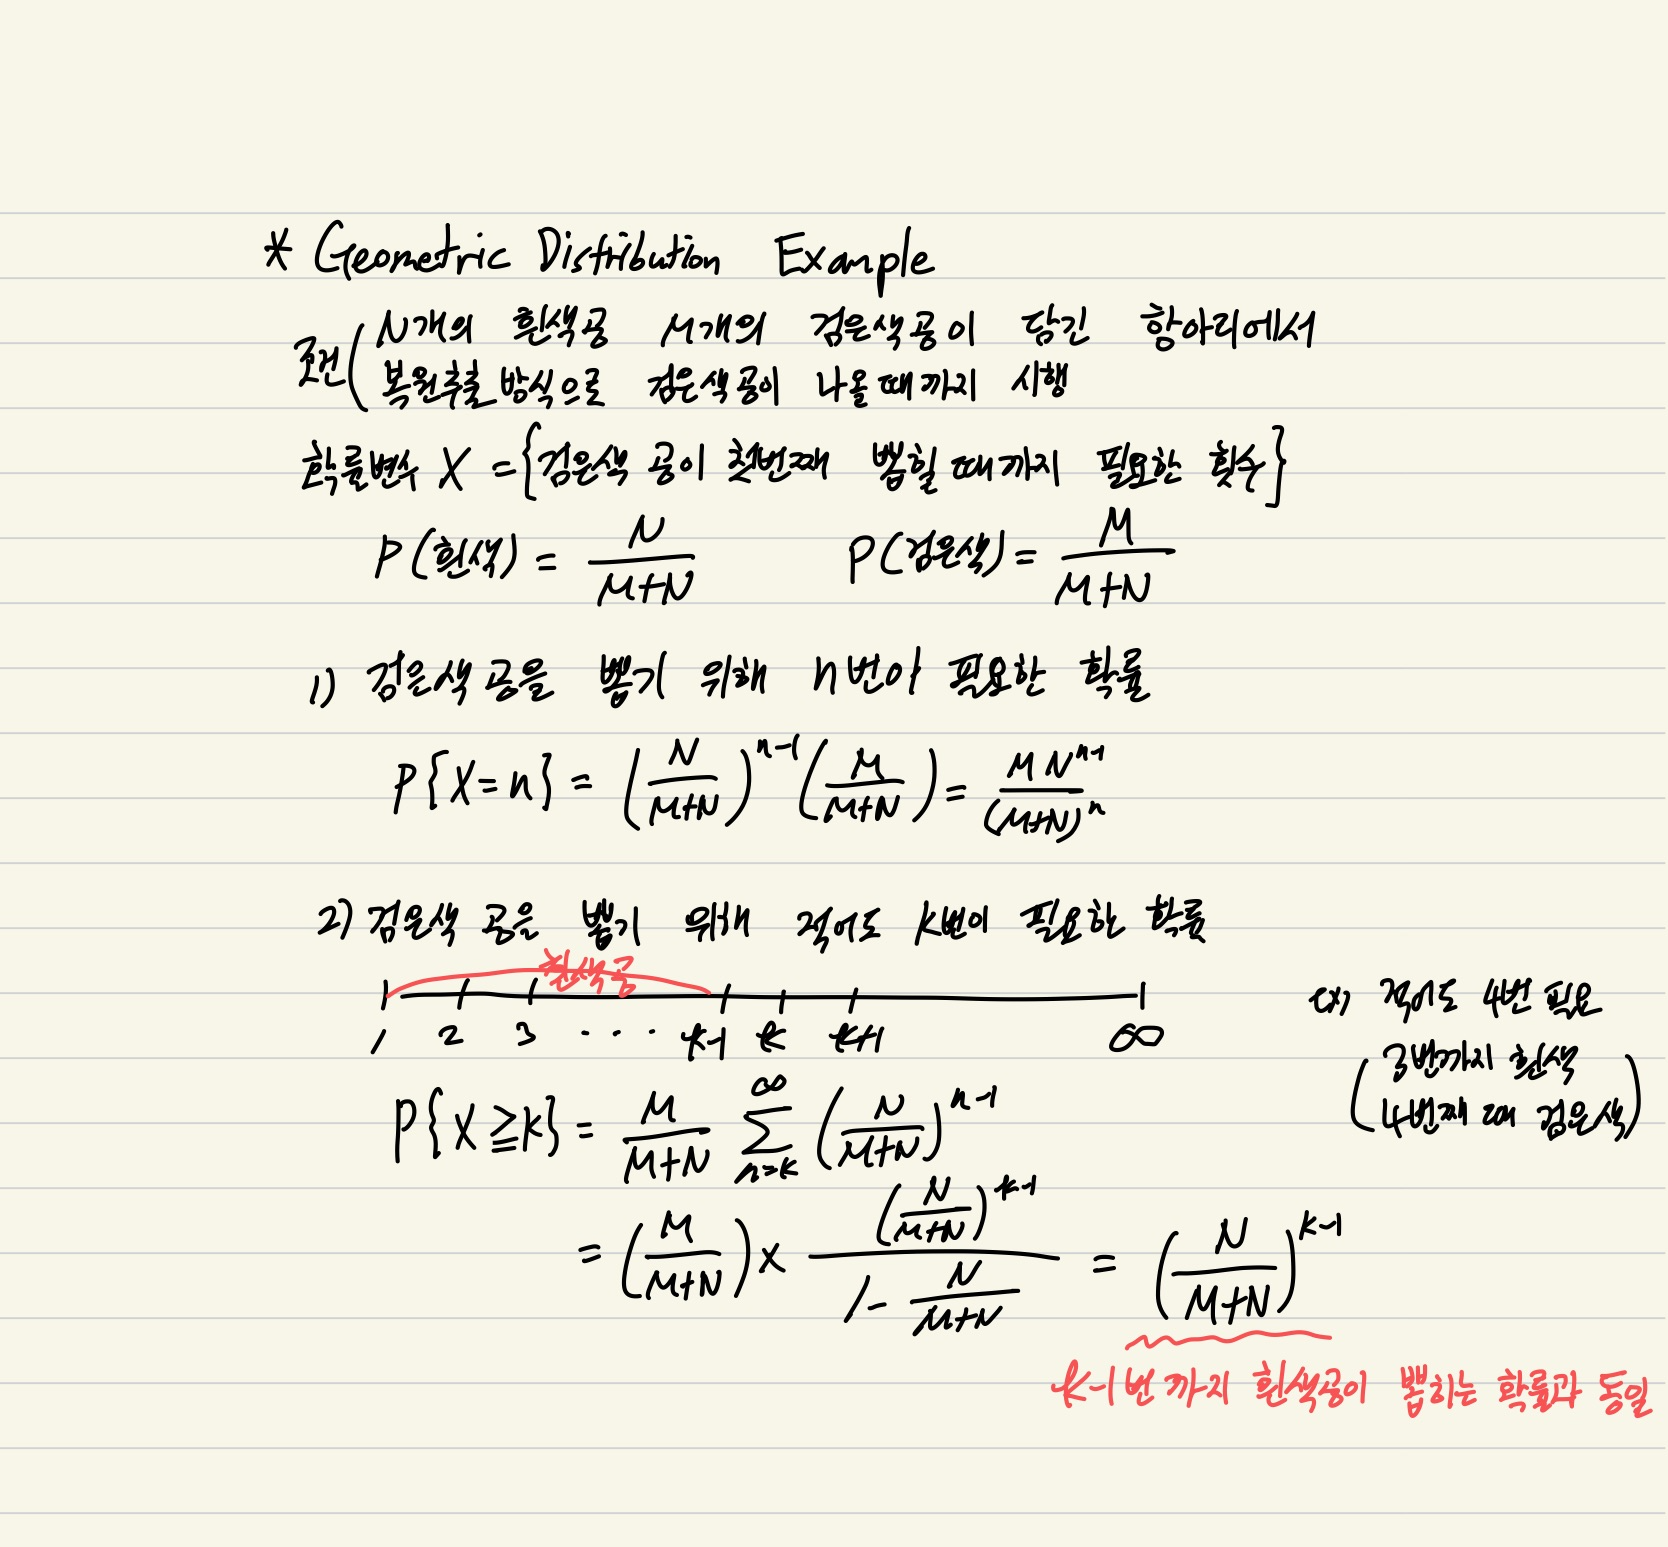 * Geometric Distribution Example
조건 ( N개의 흰색공 M개의 검은색공이 담긴 항아리에서
복원추출 방식으로 검은색공이 나올때까지 시행
확률변수 X = {검은색 공이 첫번째 뽑힐 때까지 필요한 횟수}
P(흰색) = N/(M+N) P(검은색) = M/(M+N)
1) 검은색 공을 뽑기 위해 n번이 필요한 확률
P{X=n} = (N/(M+N))^(n-1) (M/(M+N)) = MN^(n-1)/(M+N)^n
2) 검은색 공을 뽑기 위해 적어도 k번이 필요한 확률
흰색공
1 2 3 ... k-1 k k+1 ∞
ex) 적어도 4번 필요
(3번까지 흰색
4번째 때 검은색)
P{X≧k} = M/(M+N) ∑_{n=k}^{∞} (N/(M+N))^(n-1)
= (M/(M+N)) × (N/(M+N))^(k-1) / (1 - N/(M+N)) = (N/(M+N))^(k-1)
k-1번까지 흰색공이 뽑히는 확률과 동일